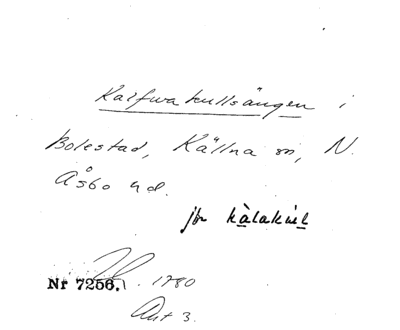 Kalfwakullsängen i
Bolestad, Källna sn, N.
Åsbo hd.
jfr
Nr 7256. 1780
Akt 3.